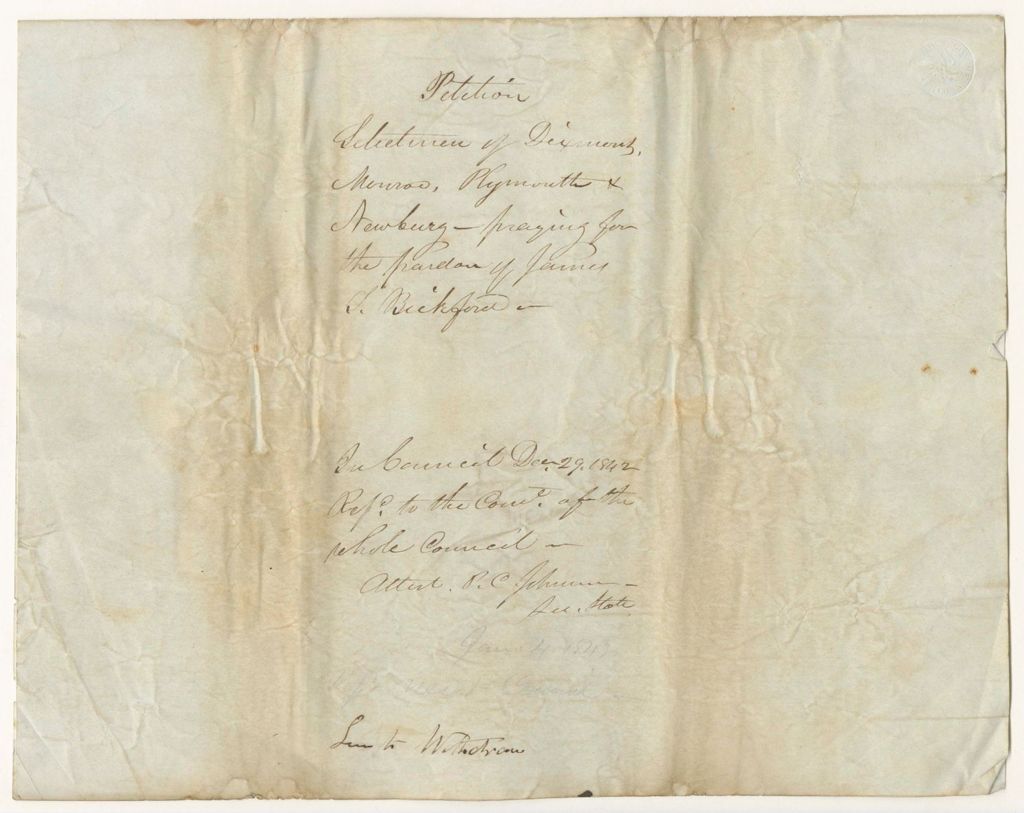 Petition
Selectmen of Dixmont,
Monroe, Plymouth &
Newburg – praying for
the pardon of James
S. Bickford –
In Council Dec. 29. 1842
Refd. to the Comee. of the
whole Council –
Attest. P. C. Johnson –
Sec. State
Jany 4 1843
next Council –
Leave to Withdraw